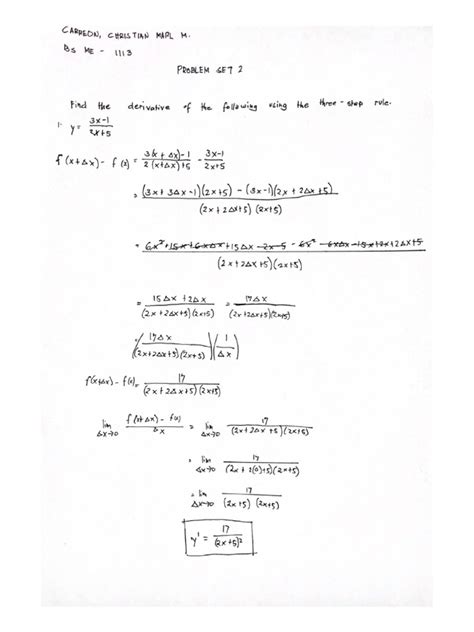 CARREON, CHRISTIAN MARL M.
BS ME - 1113
PROBLEM SET 2
Find the derivative of the following using the three-step rule.
1. y = (3x-1)/(2x+5)
f(x+Δx) - f(x) = (3(x+Δx)-1)/(2(x+Δx)+5) - (3x-1)/(2x+5)
= ((3x+3Δx-1)(2x+5) - (3x-1)(2x+2Δx+5))/((2x+2Δx+5)(2x+5))
= (6x²+15x+6xΔx+15Δx-2x-5 - 6x²-6xΔx-15x+2x+2Δx+5)/((2x+2Δx+5)(2x+5))
= (15Δx+2Δx)/((2x+2Δx+5)(2x+5)) = 17Δx/((2x+2Δx+5)(2x+5))
= (17Δx/((2x+2Δx+5)(2x+5)))(1/Δx)
f(x+Δx) - f(x) = 17/((2x+2Δx+5)(2x+5))
lim Δx→0 (f(x+Δx) - f(x))/Δx = lim Δx→0 17/((2x+2Δx+5)(2x+5))
= lim Δx→0 17/((2x+2(0)+5)(2x+5))
= lim Δx→0 17/((2x+5)(2x+5))
y' = 17/(2x+5)²